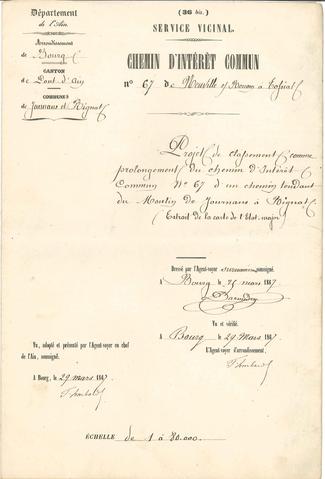 Département
de l'Ain.
Arrondissement
de Bourg
CANTON
de Pont d'Ain
COMMUNES
de Journans et Rignat
(36 bis.)
SERVICE VICINAL.
CHEMIN D'INTÉRÊT COMMUN
N° 67 De Neuville s/ Renom à
Projet de classement comme
prolongement du chemin d'Intérêt
Commun N° 67 d'un chemin tendant
du Moulin de Journans à Rignat
(Extrait de la carte de l'Etat-major)
Dressé par l'Agent-voyer soussigné.
A Bourg, le 26 mars 1887
Vu et vérifié.
A Bourg, le 29 Mars 1887
L'Agent-voyer d'arrondissement,
Vu, adopté et présenté par l'Agent-voyer en chef
de l'Ain, soussigné.
A Bourg, le 29 mars 1887
ÉCHELLE de 1 à 80.000.